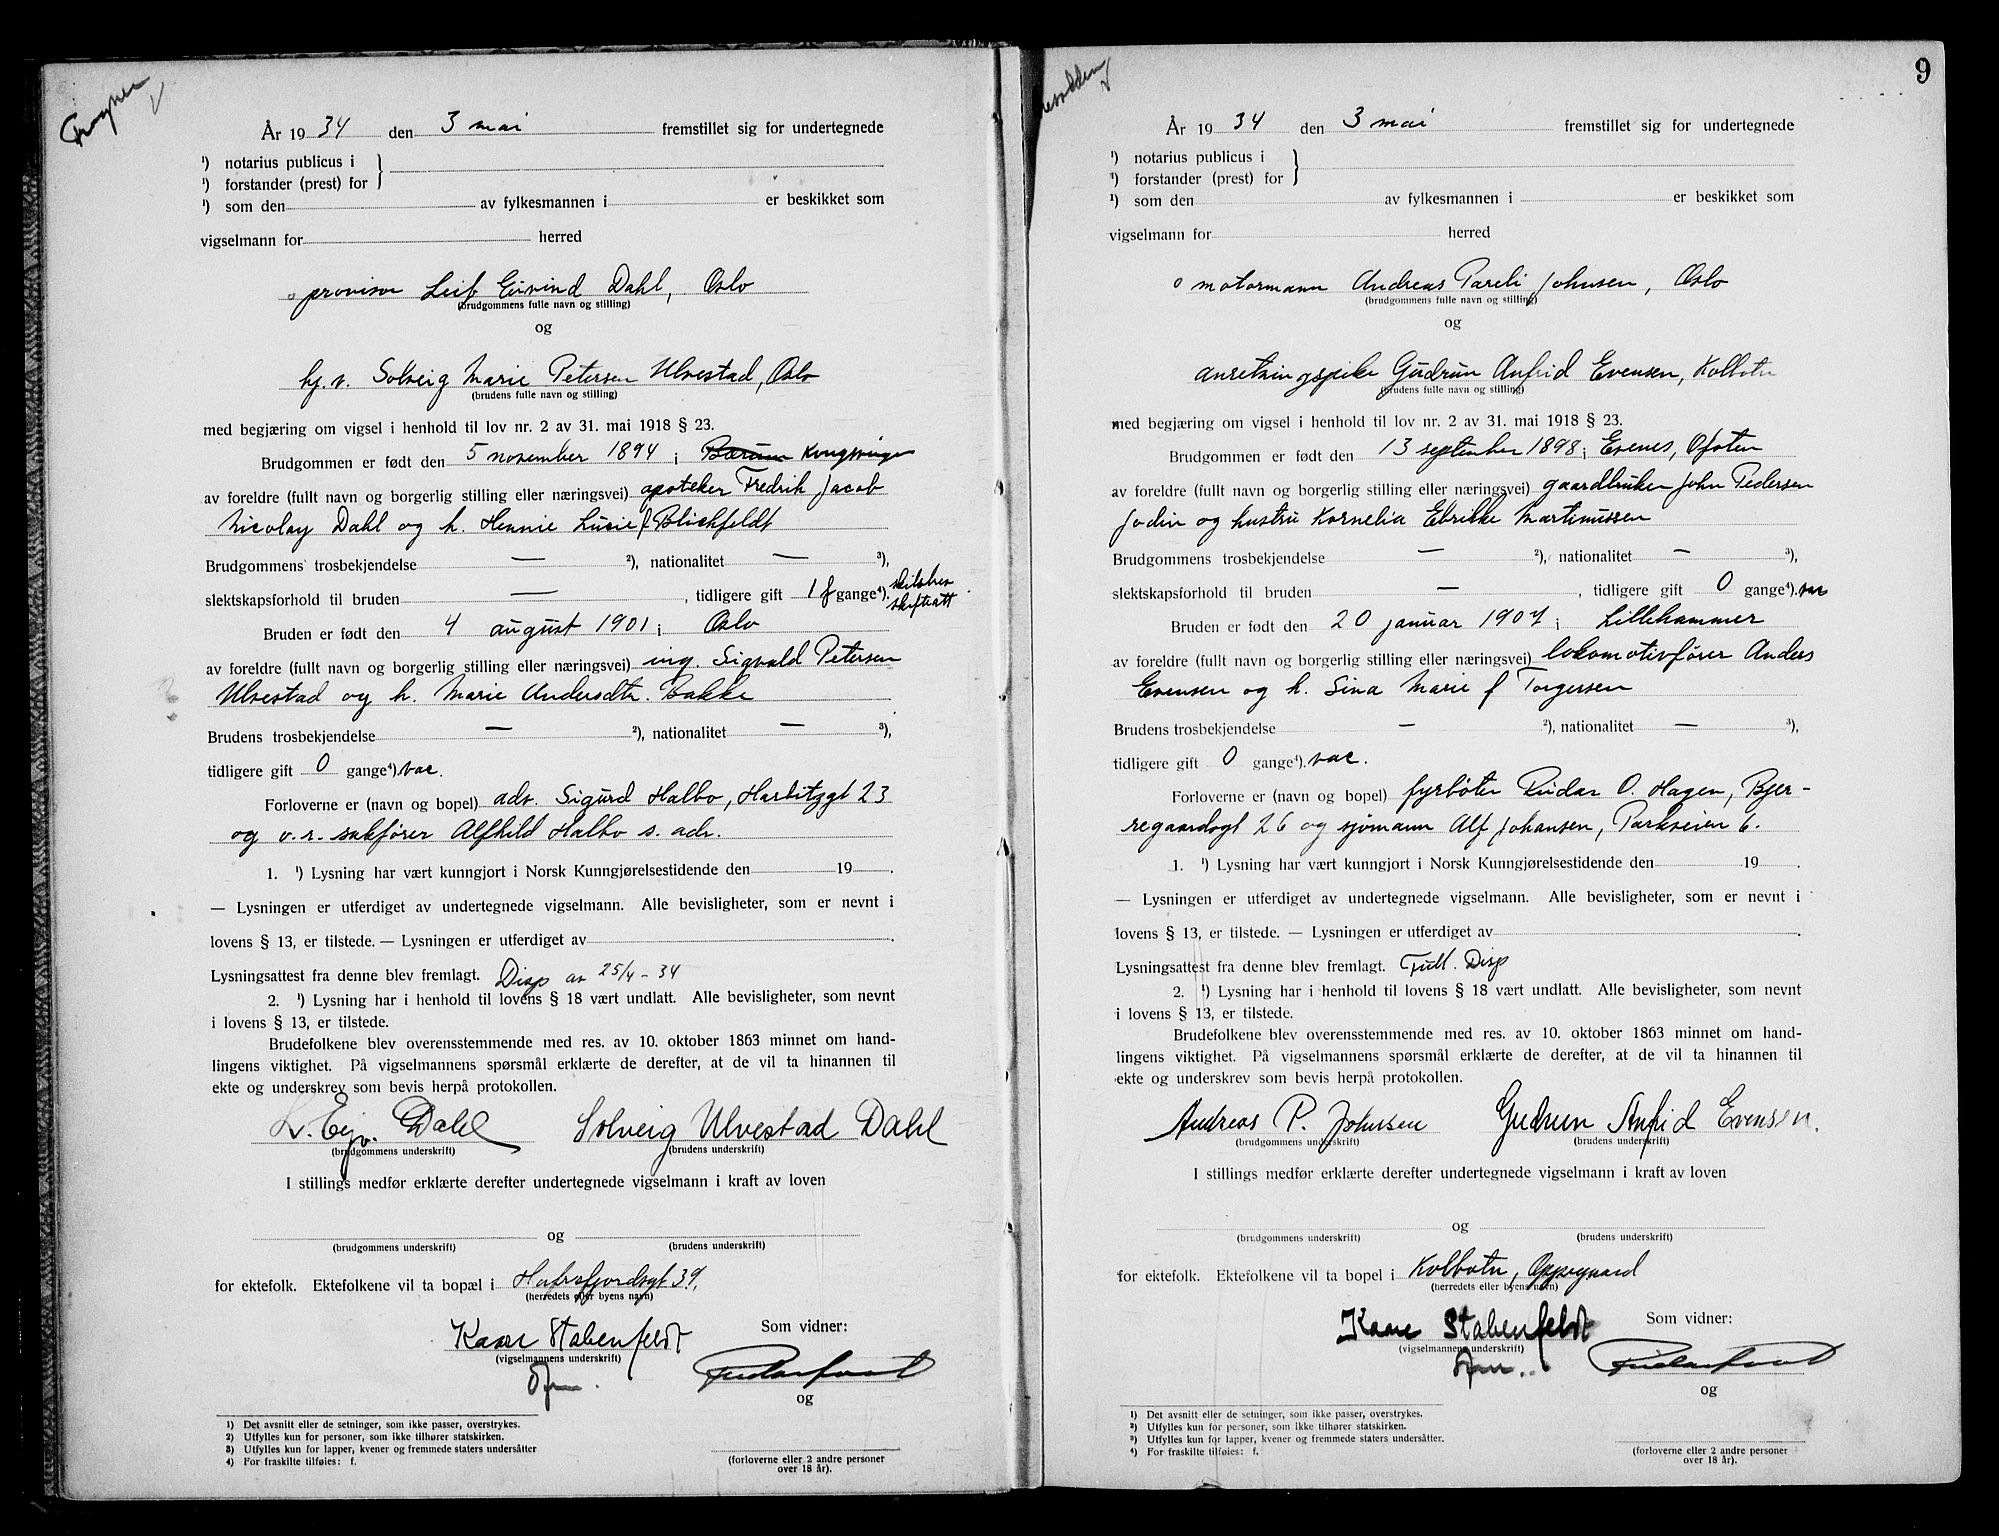 Frogner
År 19 34 den 3 mai fremstillet sig for undertegnede
¹) notarius publicus i
¹) forstander (prest) for
¹) som den av fylkesmannen i er beskikket som
vigselmann for herred
provisor Leif Eivind Dahl, Oslo
(brudgommens fulle navn og stilling)
og
hj.v. Solveig Marie Petersen Ulvestad, Oslo
(brudens fulle navn og stilling)
med begjæring om vigsel i henhold til lov nr. 2 av 31. mai 1918 § 23.
Brudgommen er født den 5 november 1894 i Bærum Kongsvinger
av foreldre (fullt navn og borgerlig stilling eller næringsvei) apoteker Fredrik Jacob
Nicolay Dahl og h. Hennie Lucie f Blichfeldt
Brudgommens trosbekjendelse — ²), nationalitet — ³),
slektskapsforhold til bruden — , tidligere gift 1 f gange⁴). skilsbev
skifteatt
Bruden er født den 4 august 1901 i Oslo
av foreldre (fullt navn og borgerlig stilling eller næringsvei) ing. Sigvald Petersen
Ulvestad og h. Marie Andersdtr. Bakke
Brudens trosbekjendelse — ²), nationalitet — ³),
tidligere gift 0 gange⁴). var.
Forloverne er (navn og bopel) adv. Sigurd Halbo, Harbitzgt 23
og o.r. sakfører Alfhild Halbo s. adr.
1. ¹) Lysning har vært kunngjort i Norsk Kunngjørelsestidende den 19 .
— Lysningen er utferdiget av undertegnede vigselmann. Alle bevisligheter, som er nevnt i
lovens § 13, er tilstede. — Lysningen er utferdiget av .
Lysningsattest fra denne blev fremlagt. Disp av 25/4 - 34
2. ¹) Lysning har i henhold til lovens § 18 vært undlatt. Alle bevisligheter, som nevnt
i lovens § 13, er tilstede.
Brudefolkene blev overensstemmende med res. av 10. oktober 1863 minnet om hand-
lingens viktighet. På vigselmannens spørsmål erklærte de derefter, at de vil ta hinannen til
ekte og underskrev som bevis herpå protokollen.
L. Ejv. Dahl Solveig Ulvestad Dahl
(brudgommens underskrift) (brudens underskrift)
I stillings medfør erklærte derefter undertegnede vigselmann i kraft av loven
og
(brudgommens underskrift) (brudens underskrift)
for ektefolk. Ektefolkene vil ta bopæl i Hafrsfjordsgt 39,
(herredets eller byens navn)
Kaare Stabenfeldt Som vidner:
(vigselmannens underskrift)
og
¹) Det avsnitt eller de setninger, som ikke passer, overstrykes.
²) Utfylles kun for personer, som ikke tilhører statskirken.
³) Utfylles kun for lapper, kvener og fremmede staters undersåtter
⁴) For fraskilte tilføies: f.
(forloverne eller 2 andre personer
over 18 år).
9
År 19 34 den 3 mai fremstillet sig for undertegnede
¹) notarius publicus i
¹) forstander (prest) for
¹) som den av fylkesmannen i er beskikket som
vigselmann for herred
motormann Andreas Pareli Johnsen, Oslo
(brudgommens fulle navn og stilling)
og
anretningspike Gudrun Anfrid Evensen, Kolbotn
(brudens fulle navn og stilling)
med begjæring om vigsel i henhold til lov nr. 2 av 31. mai 1918 § 23.
Brudgommen er født den 13 september 1898 i Evenes, Ofoten
av foreldre (fullt navn og borgerlig stilling eller næringsvei) gaardbruker John Pedersen
Jodin og hustru Kornelia Ebrikke Martinussen
Brudgommens trosbekjendelse — ²), nationalitet — ³),
slektskapsforhold til bruden — , tidligere gift 0 gange⁴). var
Bruden er født den 20 januar 1907 i Lillehammer
av foreldre (fullt navn og borgerlig stilling eller næringsvei) lokomotivfører Anders
Evensen og h. Sina Marie f Torgersen
Brudens trosbekjendelse — ²), nationalitet — ³),
tidligere gift 0 gange⁴). var.
Forloverne er (navn og bopel) fyrbøter Peidar O. Hagen, Bjer-
regaardsgt 26 og sjømann Alf Johansen, Parkveien 6.
1. ¹) Lysning har vært kunngjort i Norsk Kunngjørelsestidende den 19 .
— Lysningen er utferdiget av undertegnede vigselmann. Alle bevisligheter, som er nevnt i
lovens § 13, er tilstede. — Lysningen er utferdiget av .
Lysningsattest fra denne blev fremlagt. Full. Disp
2. ¹) Lysning har i henhold til lovens § 18 vært undlatt. Alle bevisligheter, som nevnt
i lovens § 13, er tilstede.
Brudefolkene blev overensstemmende med res. av 10. oktober 1863 minnet om hand-
lingens viktighet. På vigselmannens spørsmål erklærte de derefter, at de vil ta hinannen til
ekte og underskrev som bevis herpå protokollen.
Andreas P. Johnsen Gudrun Anfrid Evensen.
(brudgommens underskrift) (brudens underskrift)
I stillings medfør erklærte derefter undertegnede vigselmann i kraft av loven
og
(brudgommens underskrift) (brudens underskrift)
for ektefolk. Ektefolkene vil ta bopel i Kolbotn, Oppegaard
(herredets eller byens navn)
Kaare Stabenfeldt Som vidner:
(vigselmannens underskrift)
og
¹) Det avsnitt eller de setninger, som ikke passer, overstrykes.
²) Utfylles kun for personer, som ikke tilhører statskirken.
³) Utfylles kun for lapper, kvener og fremmede staters undersåtter.
⁴) For fraskilte tilføies: f.
(forloverne eller 2 andre personer
over 18 år).